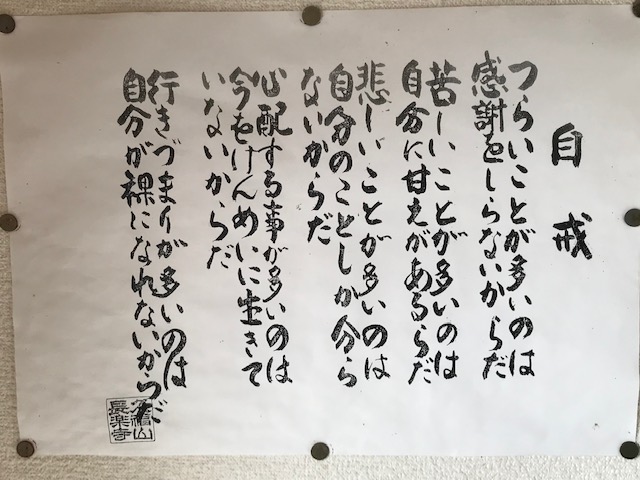 自戒
つらいことが多いのは
感謝をしらないからだ
苦しいことが多いのは
自分に甘えがあるらだ
悲しいことが多いのは
自分のことしか分ら
ないからだ
心配する事が多いのは
今をけんめいに生きて
いないからだ
行きづまりが多いのは
自分が裸になれないからだ
山
長楽寺